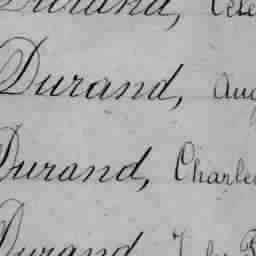 Durand,
Durand, Aug
Durand, Charles
Durand